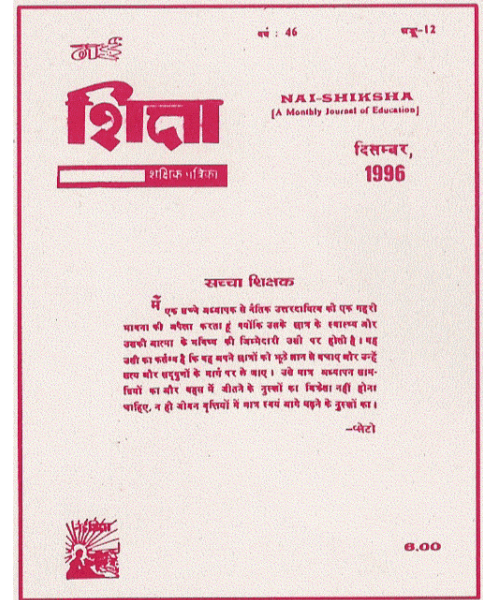 वर्ष : 46
अङ्क-12
नई
शिक्षा
NAI-SHIKSHA
[A Monthly Journal of Education]
शैक्षिक पत्रिका
दिसम्बर,
1996
सच्चा शिक्षक
मैं एक सच्चे अध्यापक से नैतिक उत्तरदायित्व की एक गहरी
भावना की अपेक्षा करता हूं क्योंकि उसके छात्र के स्वास्थ्य और
उसकी आत्मा के भविष्य की जिम्मेदारी उसी पर होती है। यह
उसी का कर्तव्य है कि वह अपने छात्रों को झूठे ज्ञान से बचाए और उन्हें
सत्य और सद्गुणों के मार्ग पर ले जाए। उसे मात्र अध्यापन साम-
ग्रियों का और बहस में जीतने के नुस्खों का विक्रेता नहीं होना
चाहिए, न ही जीवन वृत्तियों में मात्र स्वयं आगे बढ़ने के नुस्खों का।
—प्लेटो
नई शिक्षा
6.00